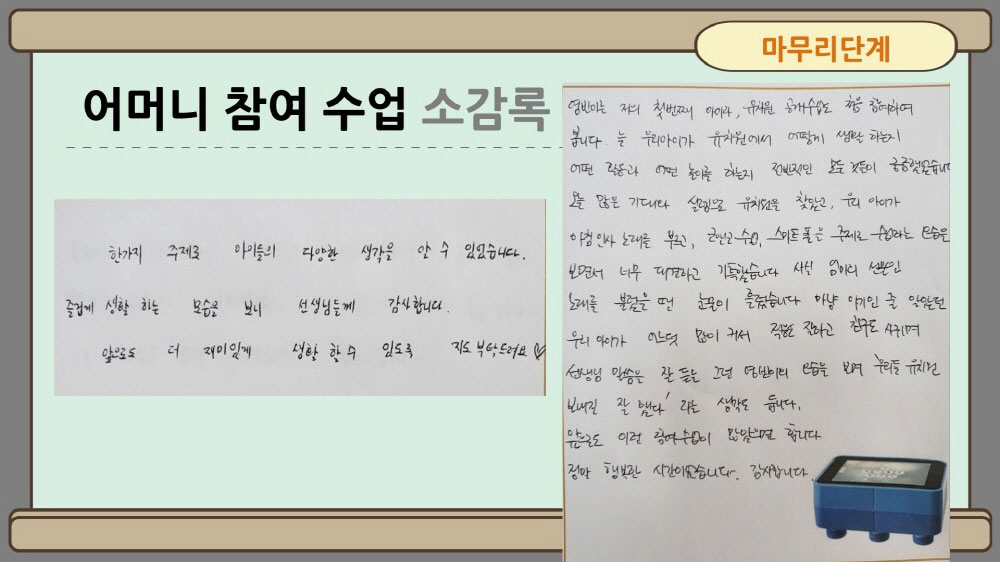 마무리단계
어머니 참여 수업 소감록
한가지 주제로 아이들의 다양한 생각을 알 수 있었습니다.
즐겁게 생활 하는 모습을 보니 선생님들께 감사합니다.
앞으로도 더 재미있게 생활 할 수 있도록 지도 부탁드려요♡
영빈이는 저의 첫번째 아이라, 유치원 공개수업도 처음 참여하여
봅니다. 늘 우리아이가 유치원에서 어떻게 생활 하는지
어떤 활동과 어떤 놀이를 하는지 전반적인 모든 것들이 궁금했었습니다
오늘 많은 기대와 설렘으로 유치원을 찾았고, 우리 아이가
아침인사 노래를 부르고, 수업, 스마트폰을 주제로 수업하는 모습을
보면서 너무 대견하고 기특했습니다 사실 엄마의 선물인
노래를 불렀을 땐 눈물이 흘렀습니다 마냥 아기인 줄 알았던
우리 아이가 어느덧 많이 커서 적응도 잘하고 친구도 사귀며
선생님 말씀을 잘 듣는 그런 영빈이의 모습을 보며 '우리들 유치원
보내길 잘 했다' 라는 생각도 듭니다.
앞으로도 이런 참여수업이 많았으면 합니다
정말 행복한 시간이였습니다. 감사합니다.